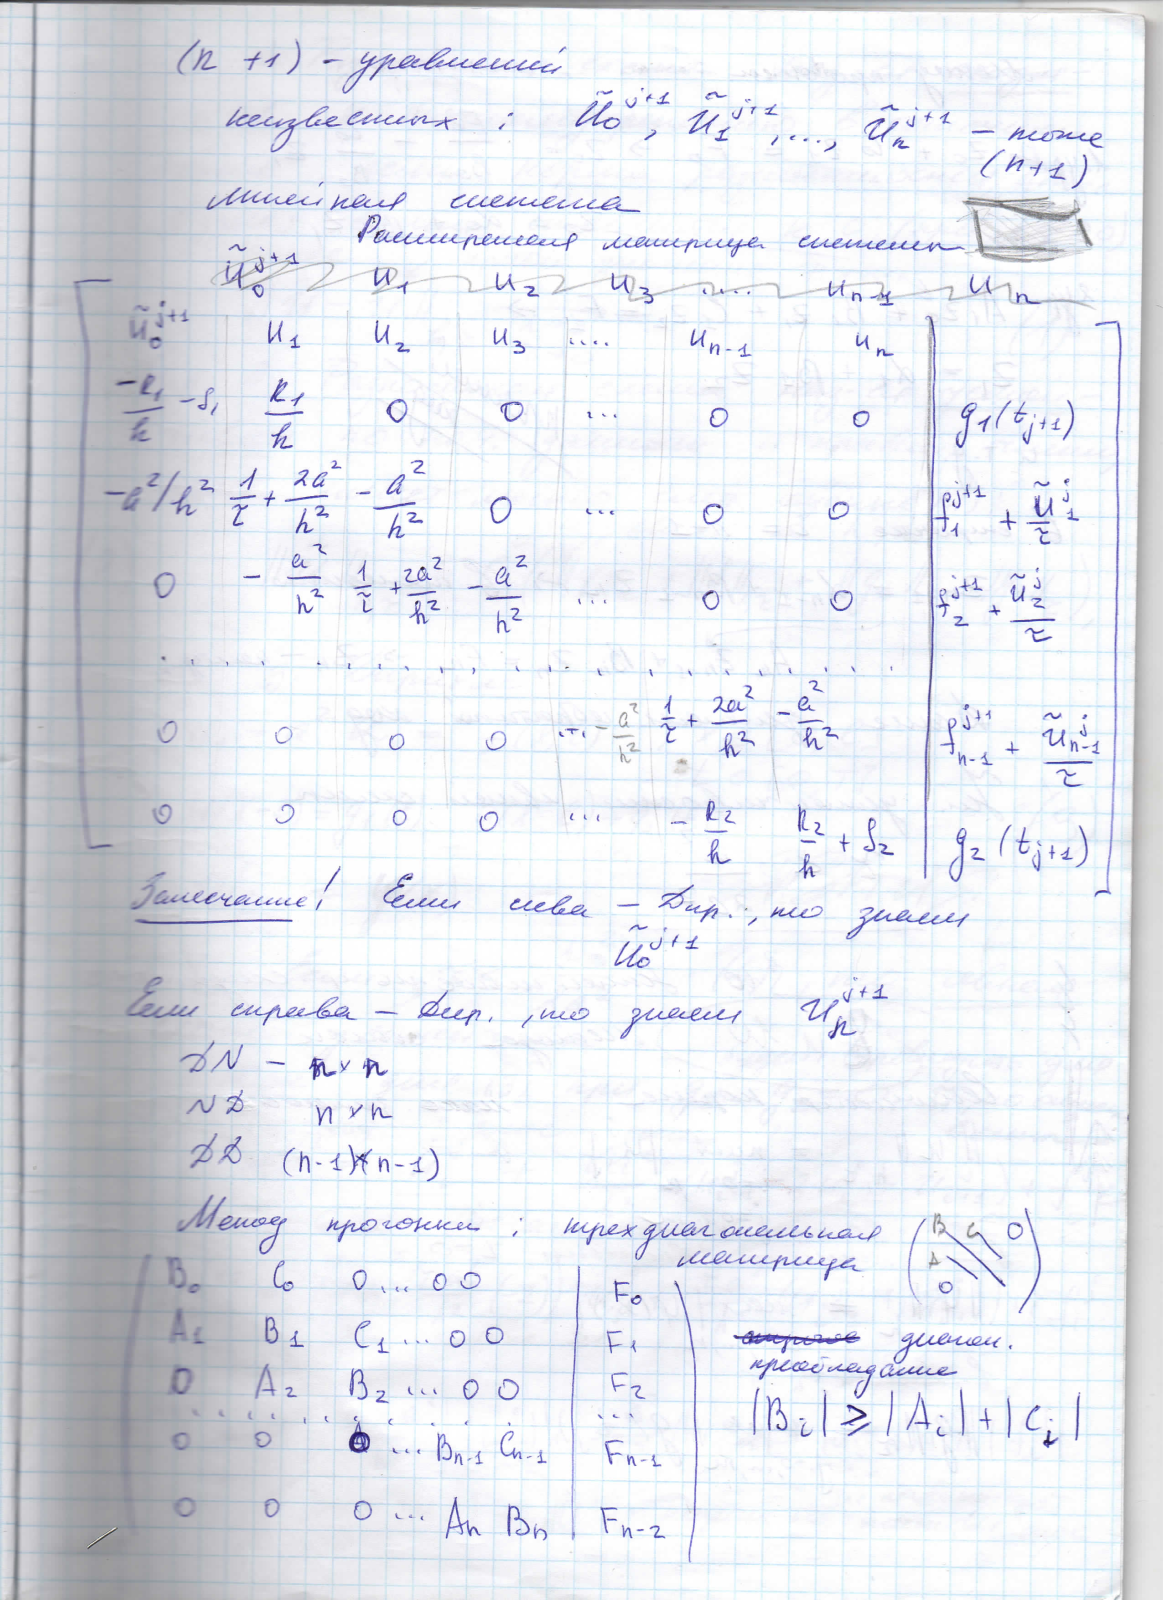 (n +1) - уравнений
неизвестных : ũ₀^{j+1}, ũ₁^{j+1}, ..., ũₙ^{j+1} - тоже
(n+1)
линейная система
Расширенная матрица системы
ũ₀^{j+1} u₁ u₂ u₃ .... uₙ₋₁ uₙ
ũ₀^{j+1} u₁ u₂ u₃ .... uₙ₋₁ uₙ
-R₁/h - S₁ R₁/h 0 0 ... 0 0 g₁(t_{j+1})
-a²/h² 1/τ + 2a²/h² -a²/h² 0 ... 0 0 f₁^{j+1} + ũ₁^j/τ
0 -a²/h² 1/τ + 2a²/h² -a²/h² ... 0 0 f₂^{j+1} + ũ₂^j/τ
. . . . . . . . . . . . . . . . . . . .
0 0 0 0 ... -a²/h² 1/τ + 2a²/h² -a²/h² fₙ₋₁^{j+1} + ũₙ₋₁^j/τ
0 0 0 0 ... -R₂/h R₂/h + S₂ g₂(t_{j+1})
Замечание! Если слева - Дир., то знаем
ũ₀^{j+1}
Если справа - Дир., то знаем uₙ^{j+1}
DN - n×n
ND n×n
DD (n-1)×(n-1)
Метод прогонки : трехдиагональная
матрица
B C 0
A
0
B₀ C₀ 0...0 0 F₀
A₁ B₁ C₁...0 0 F₁
0 A₂ B₂...0 0 F₂
. . . . . . . . . . ...
0 0 0...Bₙ₋₁ Cₙ₋₁ Fₙ₋₁
0 0 0...Aₙ Bₙ Fₙ₋₂
диагон.
преобладание
|Bᵢ| ≥ |Aᵢ| + |Cᵢ|